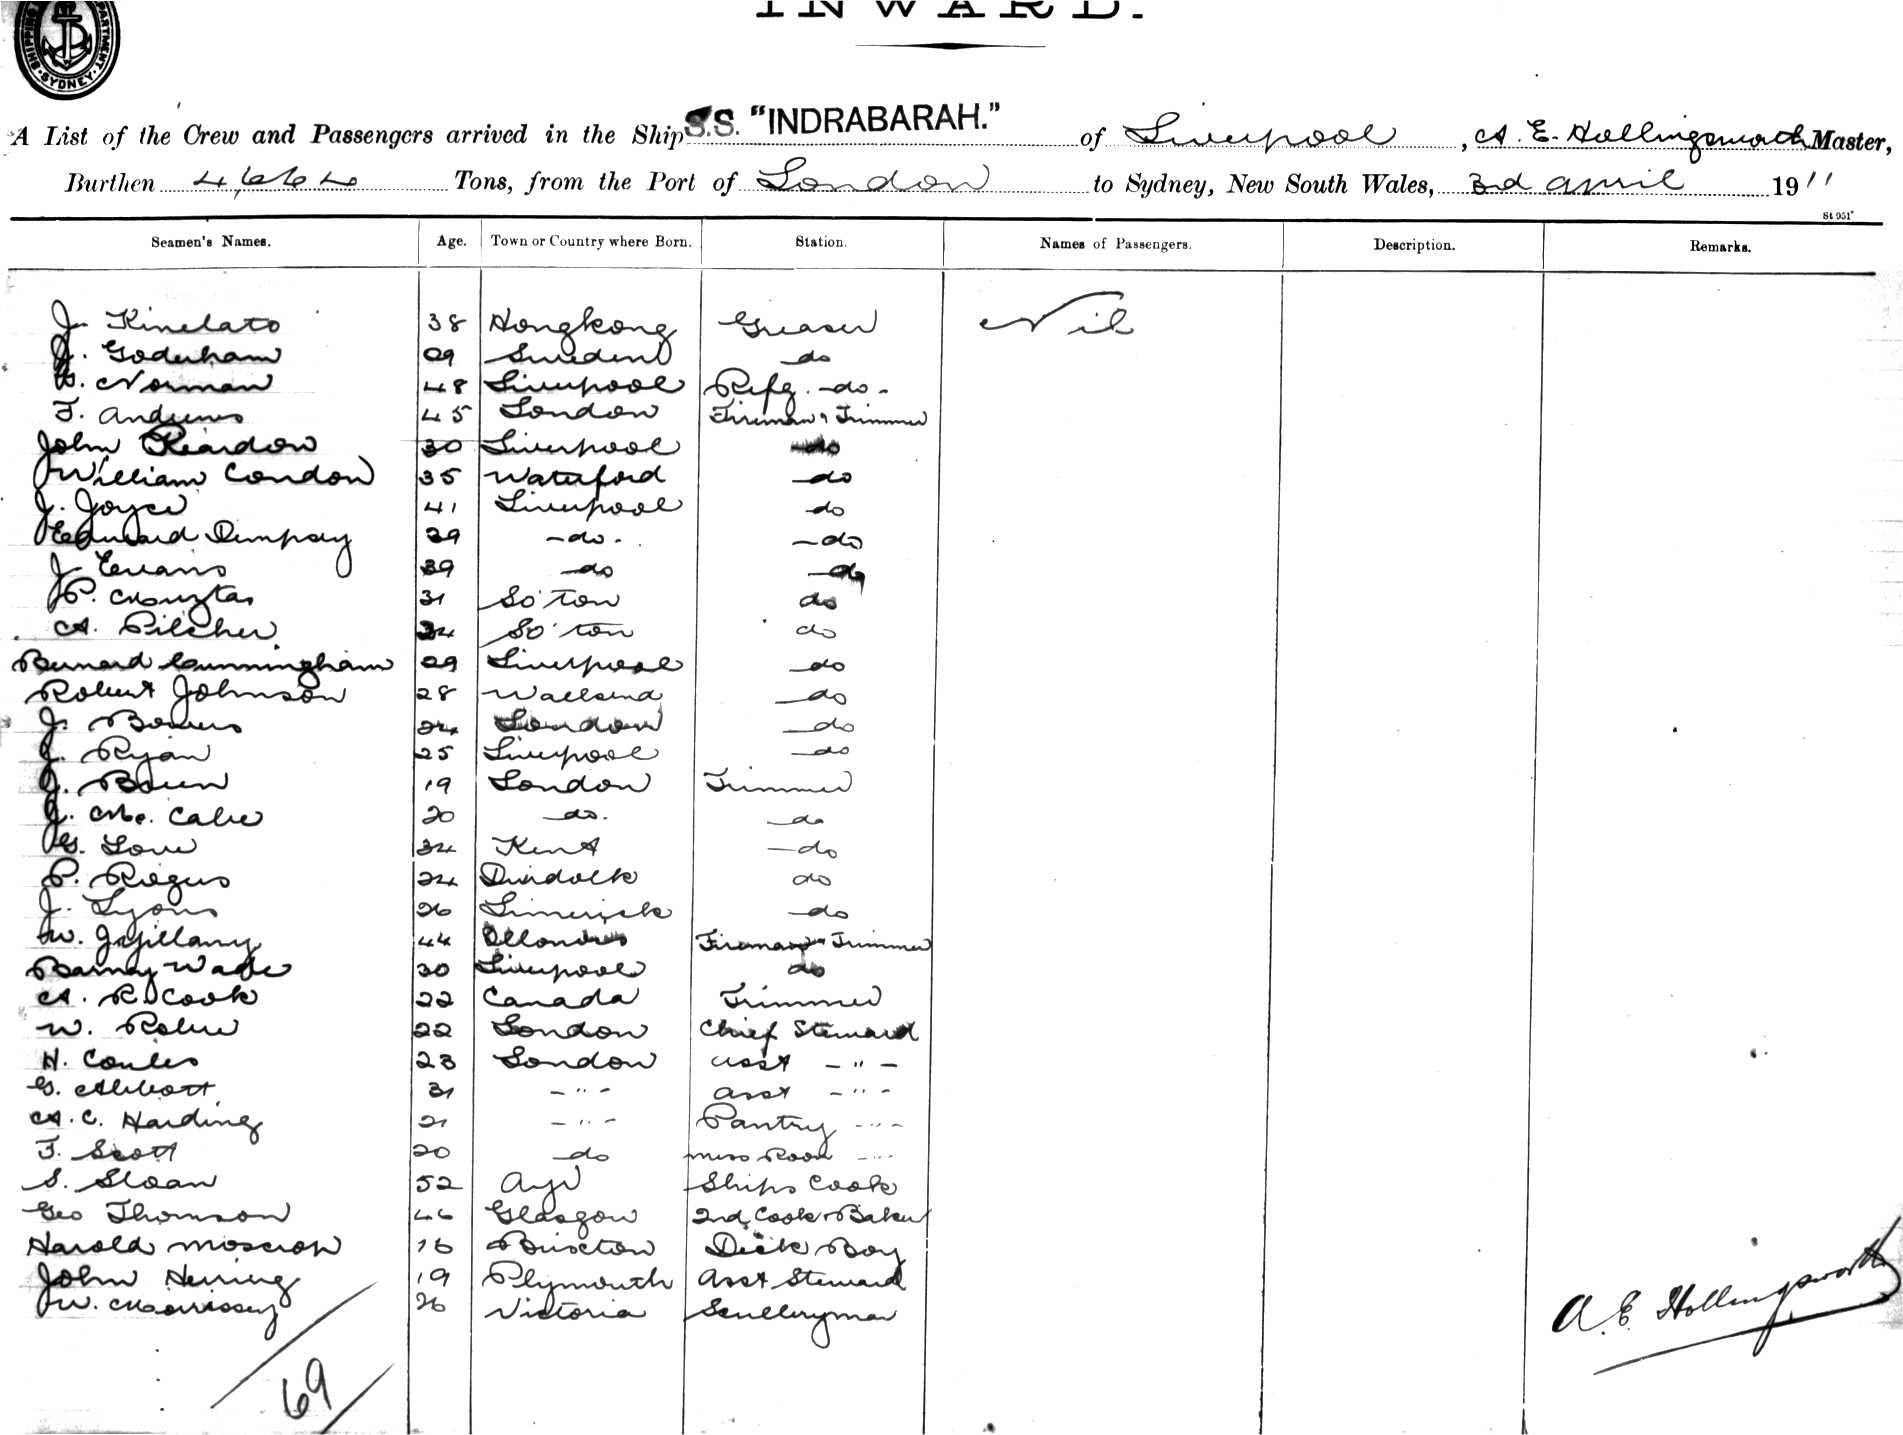 INWARD.
SHIPPING DEPARTMENT SYDNEY
A List of the Crew and Passengers arrived in the Ship S.S. "INDRABARAH." of Liverpool, A. E. Hollingsworth Master,
Burthen 4,664 Tons, from the Port of London to Sydney, New South Wales, 3rd April 1911
St 951
Seamen's Names. Age. Town or Country where Born. Station. Names of Passengers. Description. Remarks.
J. Kinelato 38 Hongkong Greaser Nil
J. Goderham 29 Sweden do
Norman 48 Liverpool Refg. -do-
F. Andrews 45 London Fireman & Trimmer
John Reardon 30 Liverpool do
William Condon 35 Waterford do
J. Joyce 41 Liverpool do
Edward Dempsey 39 -do- do
J. Evans 39 do do
P. 31 So'ton do
A. Pilcher 34 So'ton do
Bernard Cunningham 29 Liverpool do
Robert Johnson 28 Wallsend do
J. Bowers 24 London do
J. Ryan 25 Liverpool do
J. 19 London Trimmer
J. McCabe 20 do. do
G. Low 34 Kent do
P. 24 Dundalk do
J. Lyons 26 Limerick do
W. 44 Fireman & Trimmer
Barney Wade 30 Liverpool do
A. R. Cook 22 Canada Trimmer
W. Robe 22 London Chief Steward
H. Coules 23 London Asst - " -
G. Abbott 31 - " - Asst - " -
A. C. Harding 21 - " - Pantry - " -
F. Scott 20 do Mess Room - " -
S. Sloan 52 Ayr Ships Cook
Geo Thomson 46 Glasgow 2nd Cook & Baker
Harold Moscrop 16 Brixton Deck Boy
John Herring 19 Plymouth Asst Steward
W. Morrissey 26 Victoria Sculleryman
A. E. Hollingsworth
69